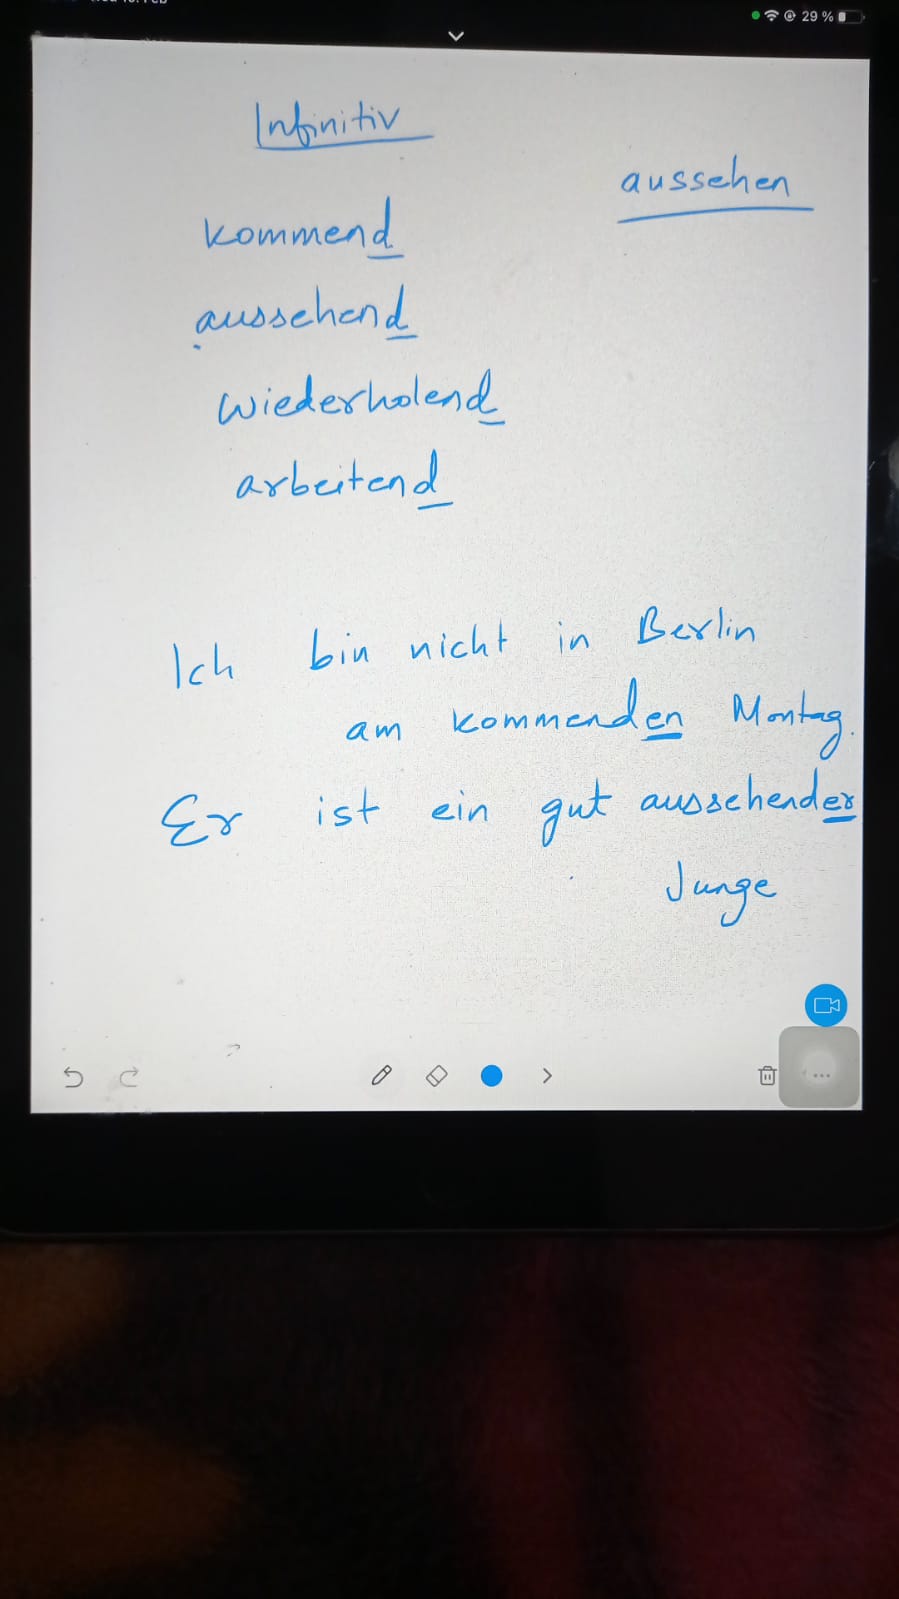 29 %
Infinitiv
aussehen
kommend
aussehend
wiederholend
arbeitend
Ich bin nicht in Berlin
am kommenden Montag.
Er ist ein gut aussehender
Junge